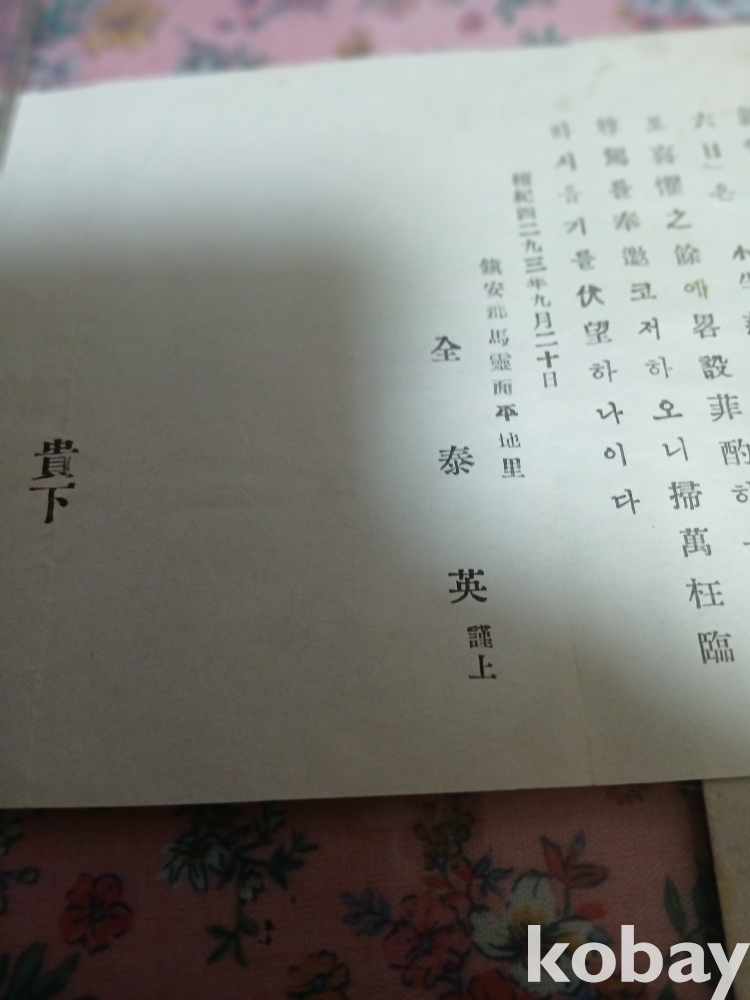 六日)은 小
로喜懼之餘에畧設菲酌하
駕를奉邀코저하오니掃萬枉臨
하시옵기를伏望하나이다
檀紀四二九三年九月二十日
鎭安郡馬靈面平地里
全泰英 謹上
貴下
kobay